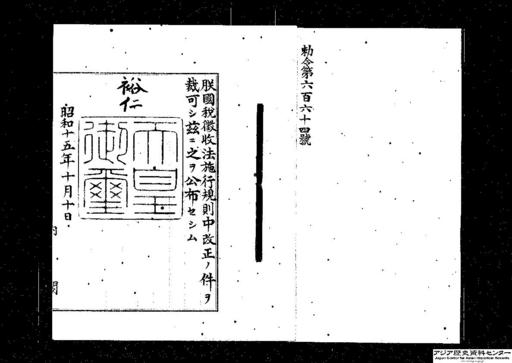 勅令第六百六十四號
朕國稅徵收法施行規則中改正ノ件ヲ
裁可シ茲ニ之ヲ公布セシム
裕仁
天皇
御璽
昭和十五年十月十日
内閣
アジア歴史資料センター
Japan Center for Asian Historical Records